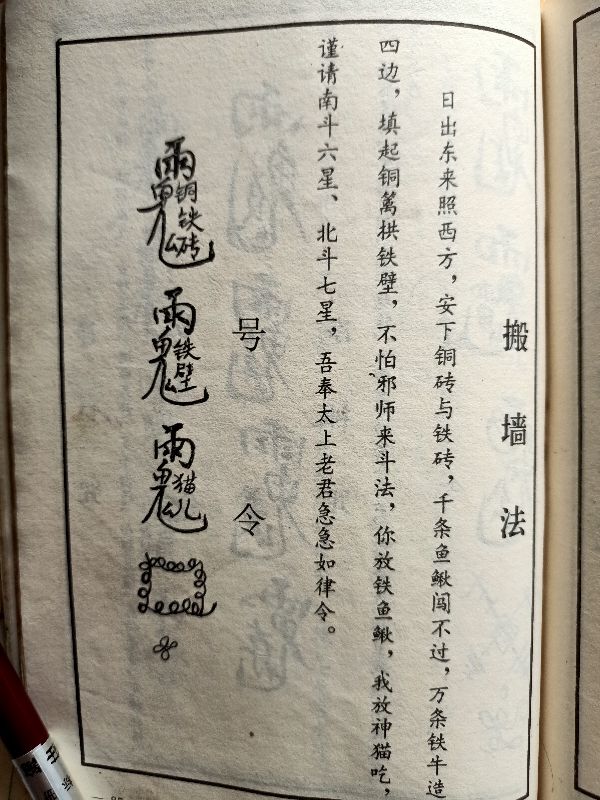 搬墙法
日出东来照西方，安下铜砖与铁砖，千条鱼鳅闯不过，万条铁牛造
四边，填起铜篱拱铁壁，不怕邪师来斗法，你放铁鱼鳅，我放神猫吃，
谨请南斗六星、北斗七星，吾奉太上老君急急如律令。
号令
雨鬼铜铁砖
雨鬼铁壁
雨鬼猫儿